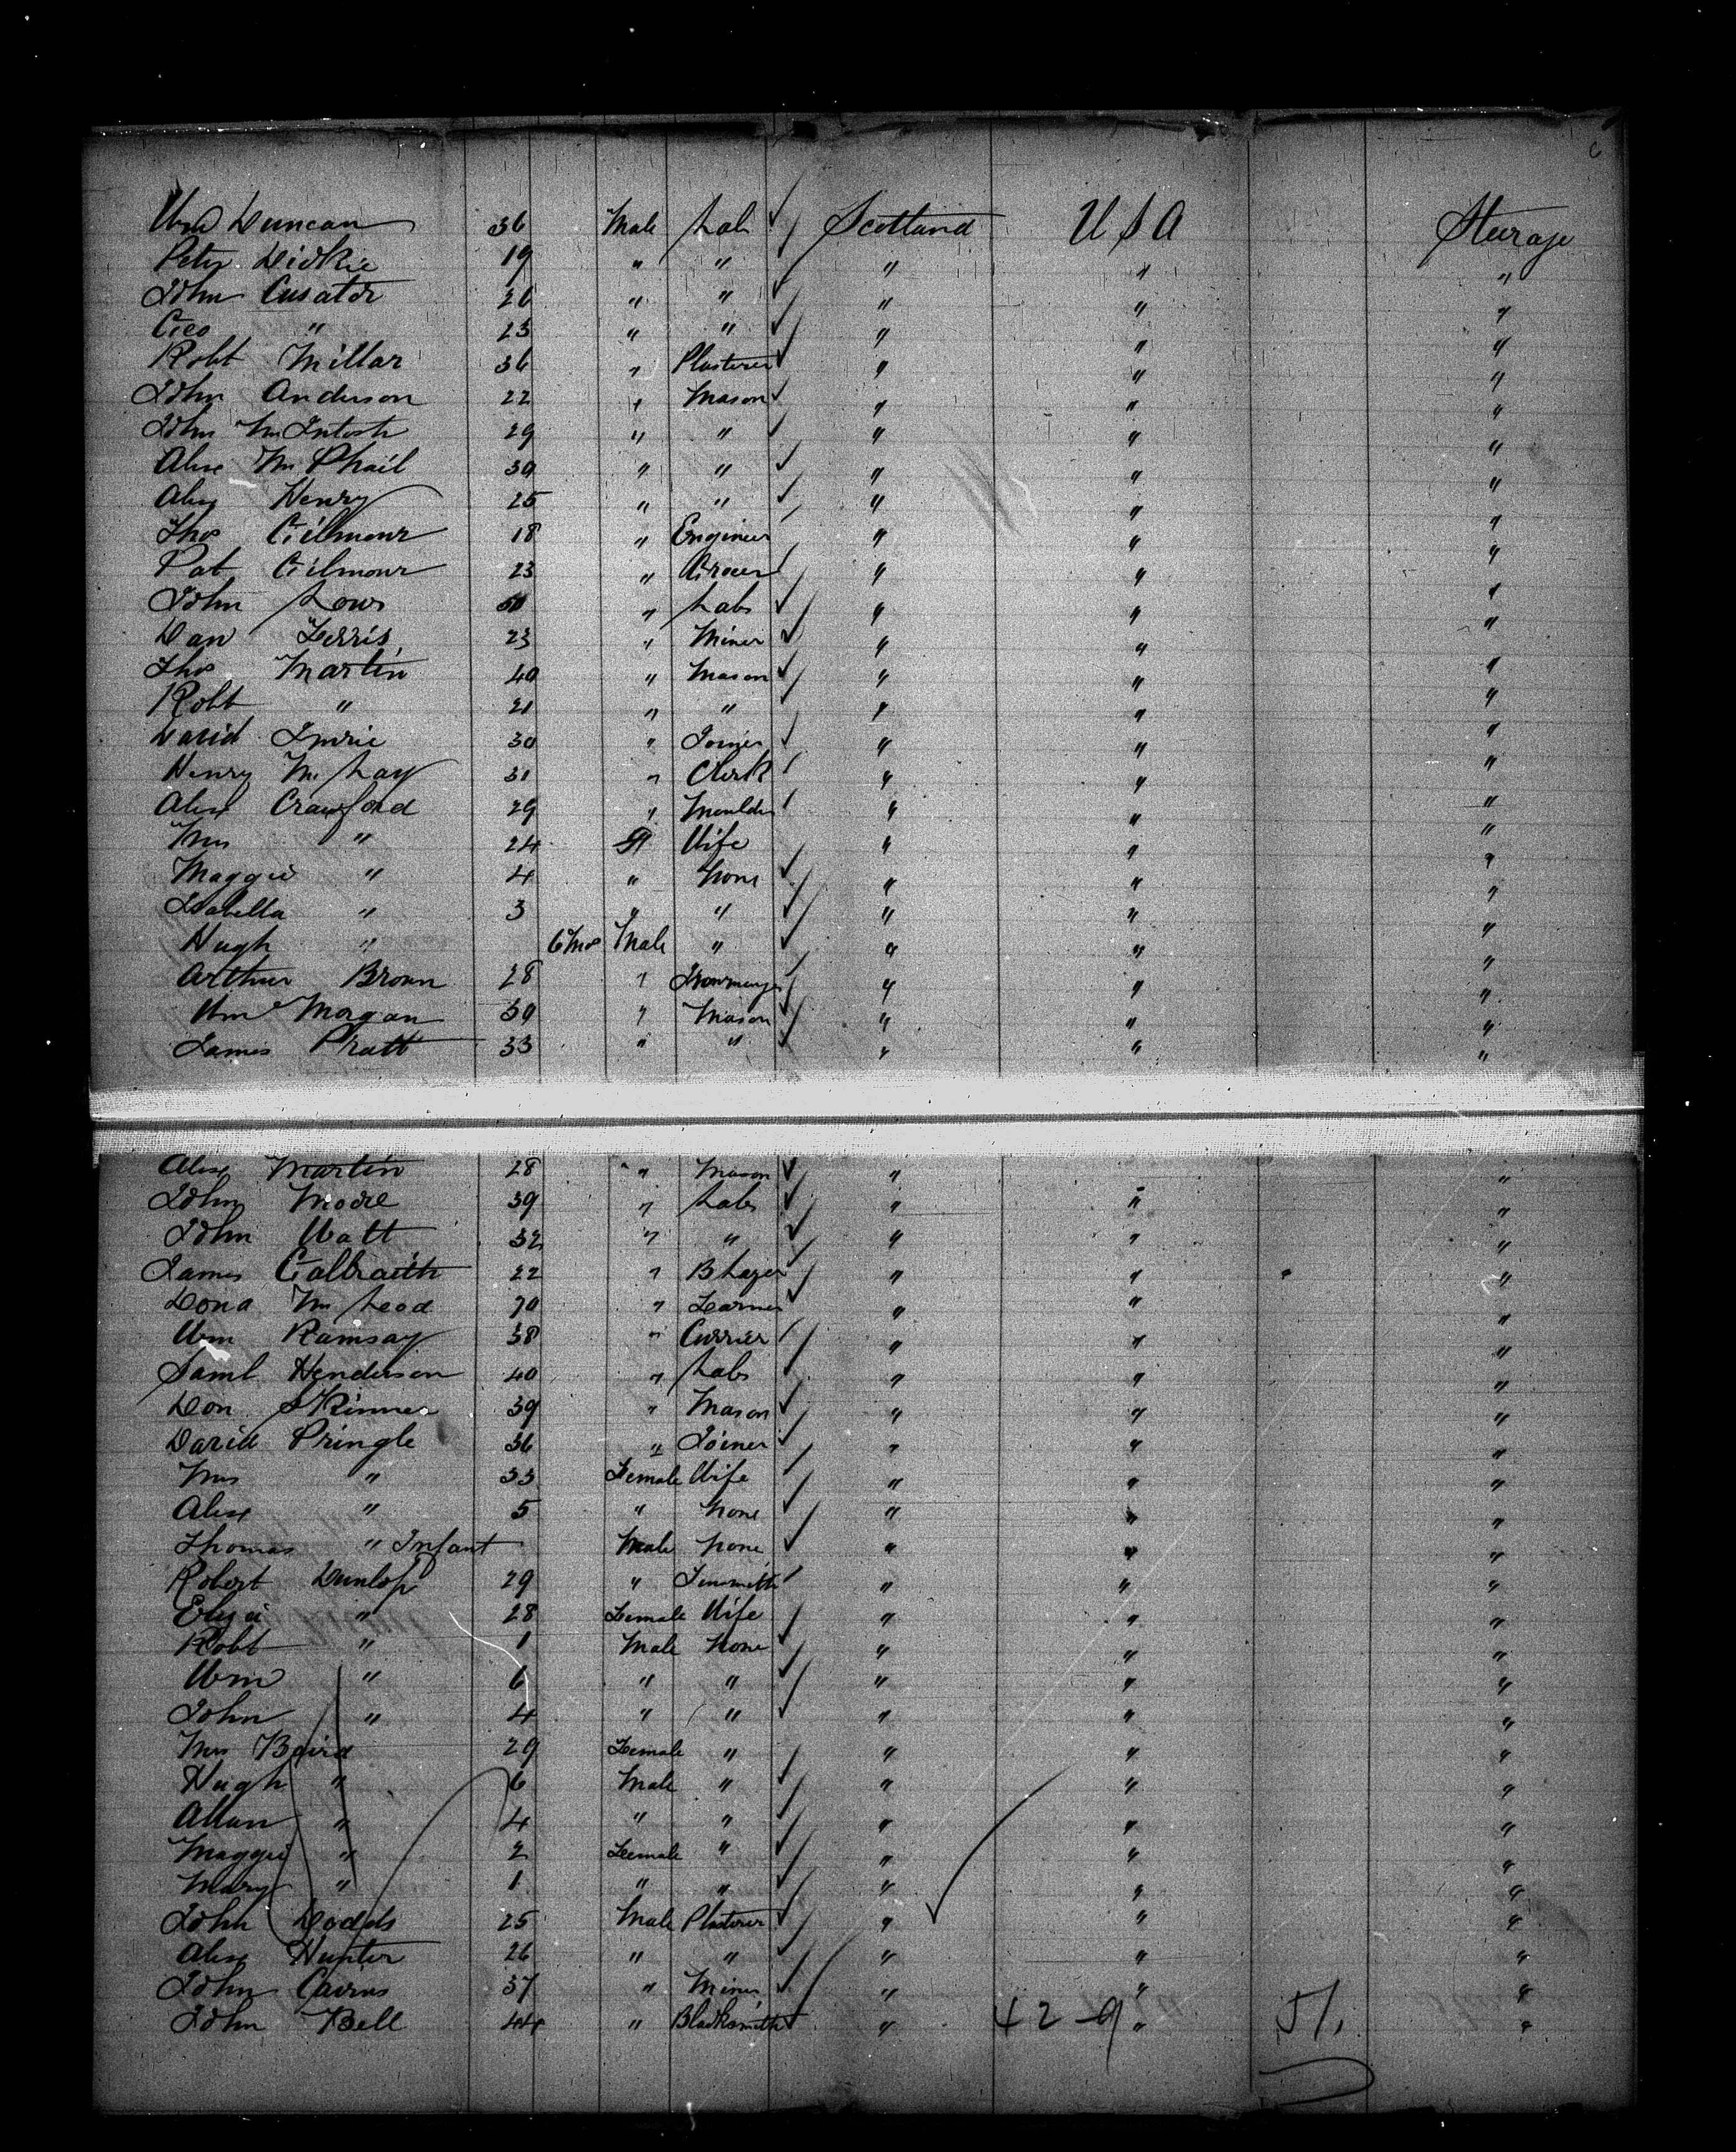 Wm Duncan 36 Male Lab Scotland U S A Steerage
Peter Dickie 19 " " " " "
John Cusator 26 " " " " "
Geo " 23 " " " " "
Robt Millar 36 " Plasterer " " "
John Anderson 22 " Mason " " "
John McIntosh 29 " " " " "
Alex McPhail 30 " " " " "
Alex Henry 25 " " " " "
Thos Gilmour 18 " Engineer " " "
Pat Gilmour 23 " Grocer " " "
John Lows " Labr " " "
Dan Ferris 23 " Miner " " "
Thos Martin 40 " Mason " " "
Robt " 21 " " " " "
David Imrie 30 " Joiner " " "
Henry McLay 31 " Clerk " " "
Alex Crawford 29 " Moulder " " "
Mrs " 24 F Wife " " "
Maggie " 4 " None " " "
Isabella " 3 " " " " "
Hugh " 6 Mos Male " " " "
Arthur Brown 28 " Ironmonger " " "
Wm Morgan 30 " Mason " " "
James Pratt 33 " " " " "
Alex Martin 28 " Mason " "
John Moore 39 " Labr " " "
John Watt 32 " " " " "
James Galbraith 22 " B Layer " " "
Dond McLeod 70 " Farmer " " "
Wm Ramsay 38 " Currier " " "
Saml Henderson 40 " Labr " " "
Don Skinner 39 " Mason " " "
David Pringle 36 " Joiner " " "
Mrs " 33 Female Wife " " "
Alex " 5 " None " " "
Thomas " Infant Male None " " "
Robert Dunlop 29 " Tinsmith " " "
Eliza " 28 Female Wife " " "
Robt " 1 Male None " " "
Wm " 6 " " " " "
John " 4 " " " " "
Mrs Baird 29 Female " " " "
Hugh " 6 Male " " " "
Allan " 4 " " " " "
Maggie " 2 Female " " " "
Mary " 1 " " " " "
John Dodds 25 Male Plasterer " " "
Alex Hunter 26 " " " " "
John Cairns 37 " Miner " " "
John Bell 44 " Blacksmith " 42-9 " 51. "